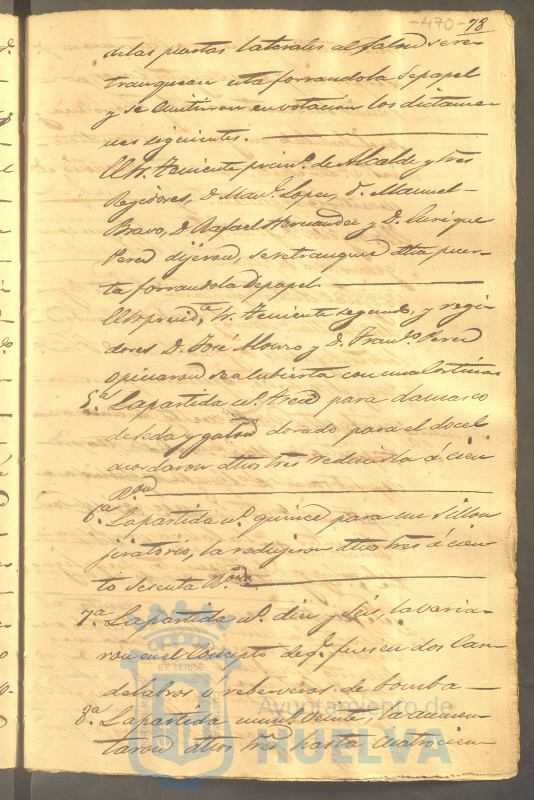 -470- 78
de las puertas laterales al salon se re-
tranquear esta forrandola de papel
y se emitieron en votacion los dictame-
nes siguientes.
El Sr. Teniente prim.o de Alcalde y tres
Regidores, D. Man.l Lopez, D. Manuel
Bravo, D. Rafael Hernandez y D. Enrique
Perez dijeron, se retranquee dha puer-
ta forrandola de papel.
El Sr. presid.te Sr. Teniente segundo, y regi-
dores D. José Mouro y D. Fran.co Perez
opinaron sea cubierta con una cortina
5.a La partida n.o trece para damasco
de seda y galon dorado para el docel
acordaron dhos tres reducirla á cien
R.on
6.a La partida n.o quince para un sillon
jiratorio, la redujeron dhos tres á cien-
to sesenta R.on
7.a La partida n.o diez y seis, la varia-
ron en el concepto de q.e fuesen dos can-
delabros o reberveros de bomba
8.a La partida num.o veinte, la aumen-
taron dhos tres hasta cuatrocien-
Ayuntamiento de
HUELVA